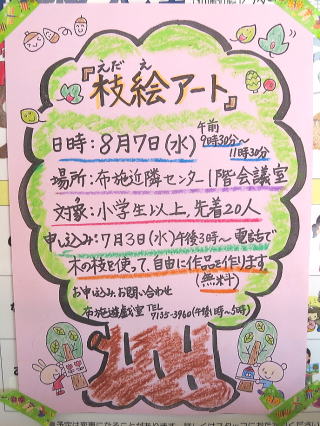 えだ え
『枝絵アート』
日時：8月7日(水) 午前9時30分～11時30分
場所：布施近隣センター1階会議室
対象：小学生以上、先着20人
申し込み：7月3日(水)午後3時～電話で
木の枝を使って、自由に作品を作ります
(無料)
お申し込み、お問い合わせ
布施遊戯室 TEL 7135-3960(午後1時～5時)